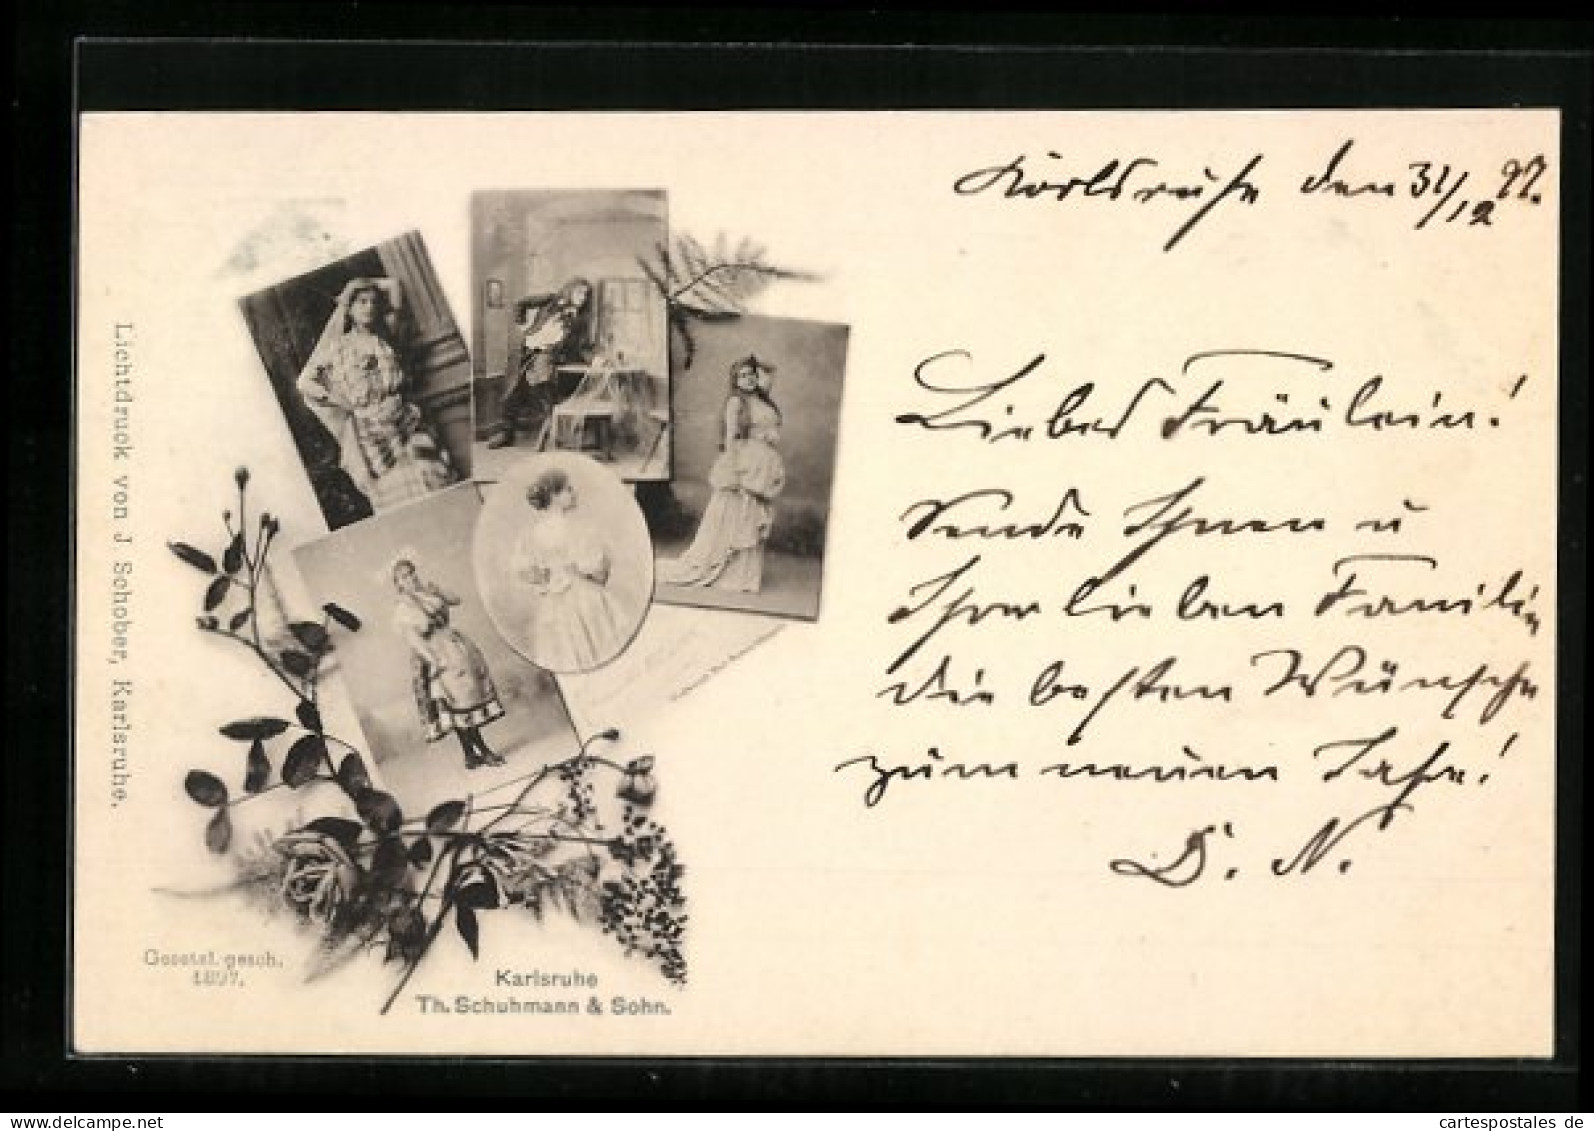 Karlsruhe den 31/12 97.
Liebes Fräulein!
Sende Ihnen u
Ihrer lieben Familie
die besten Wünsche
zum neuen Jahre!
D. N.
Lichtdruck von J Schober, Karlsruhe.
Gesetzl. gesch.
1897.
Karlsruhe
Th. Schuhmann & Sohn.
delcampe.net
cartespostales de